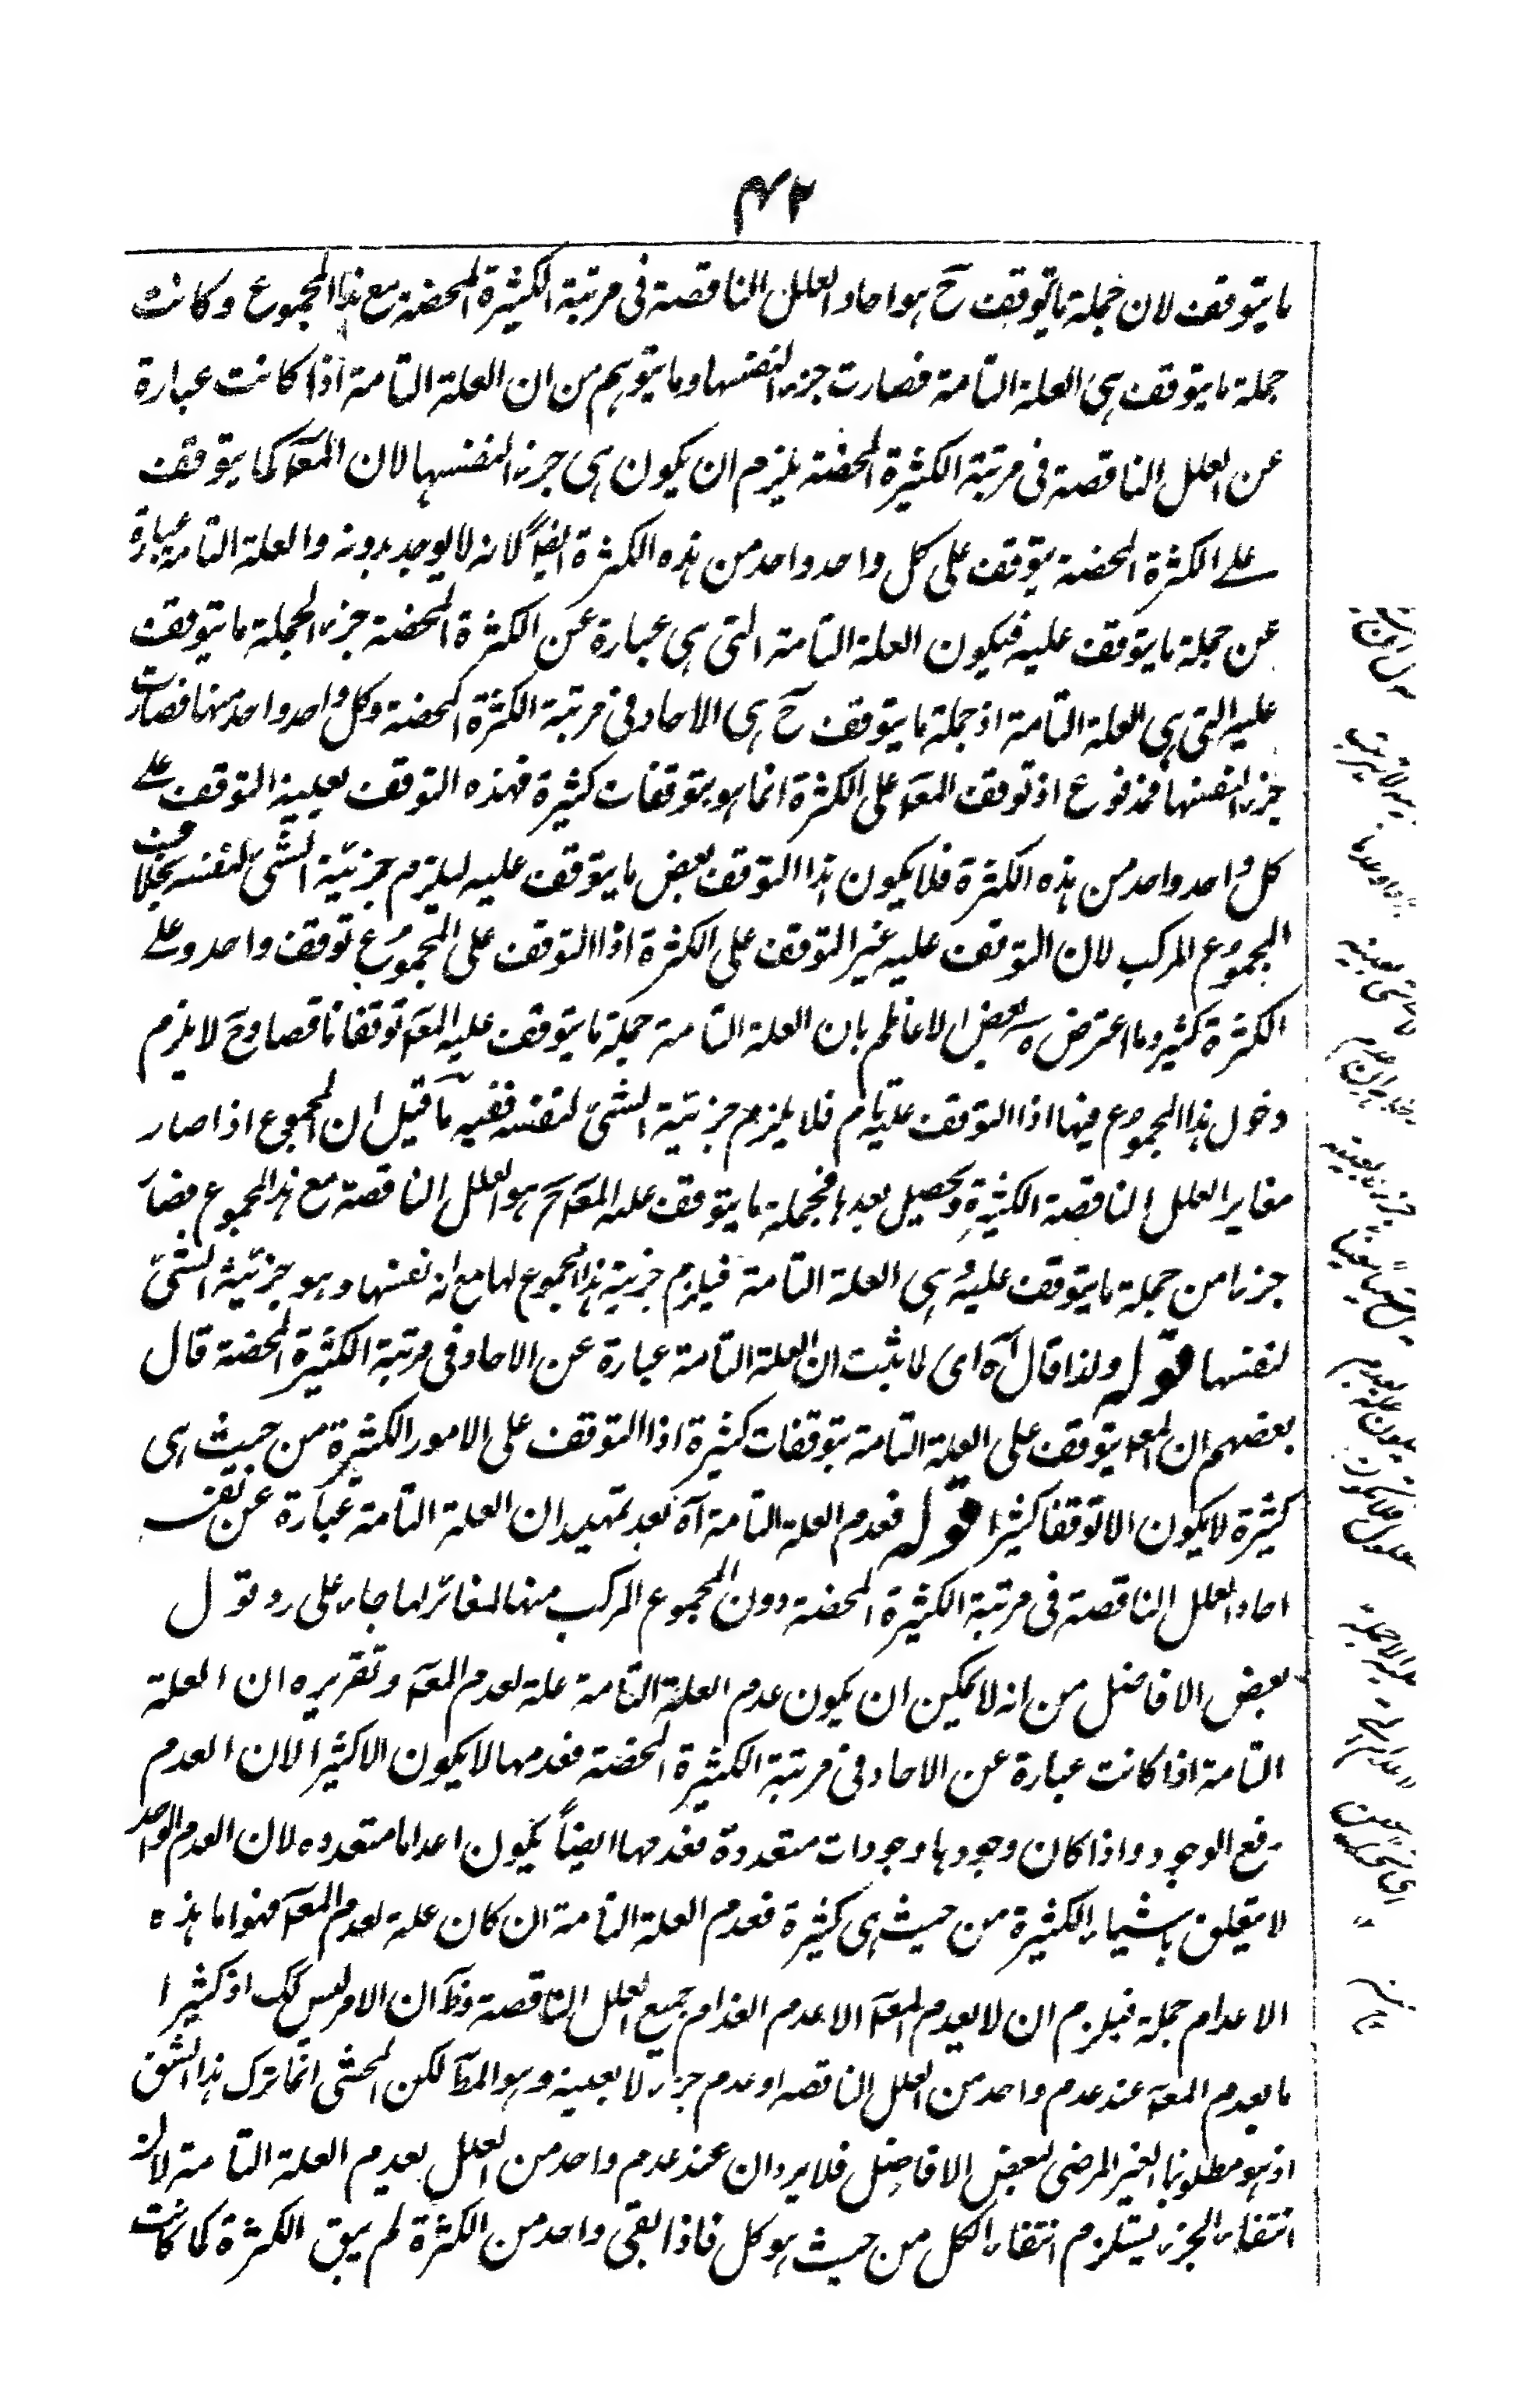 ۴۲
ما يتوقف لان جملة ما يتوقف ح هو احاد العلل الناقصة فى مرتبة الكثيرة المحضة مع هذا المجموع وكانت
جملة ما يتوقف هى العلة التامة فصارت جزء لنفسها وما يتوهم من ان العلة التامة اذا كانت عبارة
عن العلل الناقصة فى مرتبة الكثيرة المحضة يلزم ان يكون هى جزء لنفسها لان المعه كما يتوقف
على الكثرة المحضة يتوقف على كل واحد واحد من هذه الكثرة ايضاً لانه لا يوجد بدونه والعلة التامة عبارة
عن جملة ما يتوقف عليه فيكون العلة التامة التى هى عبارة عن الكثرة المحضة جزء لجملة ما يتوقف
عليه التى هى العلة التامة اذ جملة ما يتوقف ح هى الاحاد فى مرتبة الكثرة المحضة وكل واحد واحد منها فصارت
جزء لنفسها فمدفوع اذ توقف المعه على الكثرة انما هو بتوقفات كثيرة فهذه التوقف بعينه التوقف على
كل واحد واحد من هذه الكثرة فلا يكون هذا التوقف بعض ما يتوقف عليه ليلزم جزئية الشئ لنفسه بخلاف
المجموع المركب لان التوقف عليه غير التوقف على الكثرة اذا التوقف على المجموع توقف واحد وعلى
الكثرة كثير وما اعترض به بعض الاعاظم بان العلة التامة جملة ما يتوقف عليه المعه توقفا ناقصا وح لا يلزم
دخول هذا المجموع فيها اذا التوقف عليه تام فلا يلزم جزئية الشئ لنفسه ففيه ما قيل ان المجموع اذا صار
مغايرا لعلل الناقصة الكثيرة وتحصيل بعدها فجملة ما يتوقف عليه المعه ح هو العلل الناقصة مع هذا المجموع فصار
جزءا من جملة ما يتوقف عليه هى العلة التامة فيلزم جزئية هذا المجموع لها مع انه نفسها وهو جزئية الشئ
لنفسها قوله ولذا قال آه اى لا ثبت ان العلة التامة عبارة عن الاحاد فى مرتبة الكثيرة المحضة قال
بعضهم ان المعه يتوقف على العلة التامة بتوقفات كثيرة اذا التوقف على الامور الكثيرة من حيث هى
كثيرة لا يكون الا توقفا كثيرا قوله فعدم العلة التامة آه بعد تمهيد ان العلة التامة عبارة عن نفس
احاد العلل الناقصة فى مرتبة الكثيرة المحضة دون المجموع المركب منها المغائر لها جار على رد قول
بعض الافاضل من انه لا يمكن ان يكون عدم العلة التامة علة لعدم المعه وتقريره ان العلة
التامة اذا كانت عبارة عن الاحاد فى مرتبة الكثيرة المحضة فعدمها لا يكون الا كثيرا لان العدم
رفع الوجود واذا كان وجودها وجودات متعددة فعدمها ايضاً يكون اعداما متعدده لان العدم الواحد
لا يتعلق باشياء الكثيرة من حيث هى كثيرة فعدم العلة التامة ان كان علة لعدم المعه فهو اما هذه
الاعدام جملة فيلزم ان لا يعدم المعه الا عدم انعدام جميع العلل الناقصة وظ ان الامر ليس كك اذ كثيرا
ما يعدم المعه عند عدم واحد من العلل الناقصه او عدم جزء لا بعينه وهو المط لكن المحشى انما ترك هذا الشق
اذ هو مطلوبنا الغير المرضى لبعض الافاضل فلا يرد ان عند عدم واحد من العلل يعدم العلة التامة لان
انتفاء الجزء يستلزم انتفاء الكل من حيث هو كل فاذا بقى واحد من الكثرة لم يبق الكثرة كما كانت